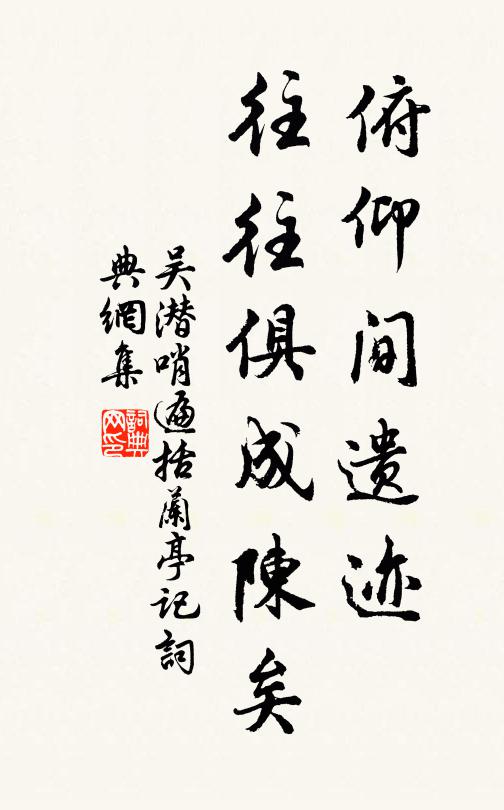 俯仰间遗迹
往往俱成陳矣
吴潜哨遍括蘭亭记詞
典網集
詞典网印